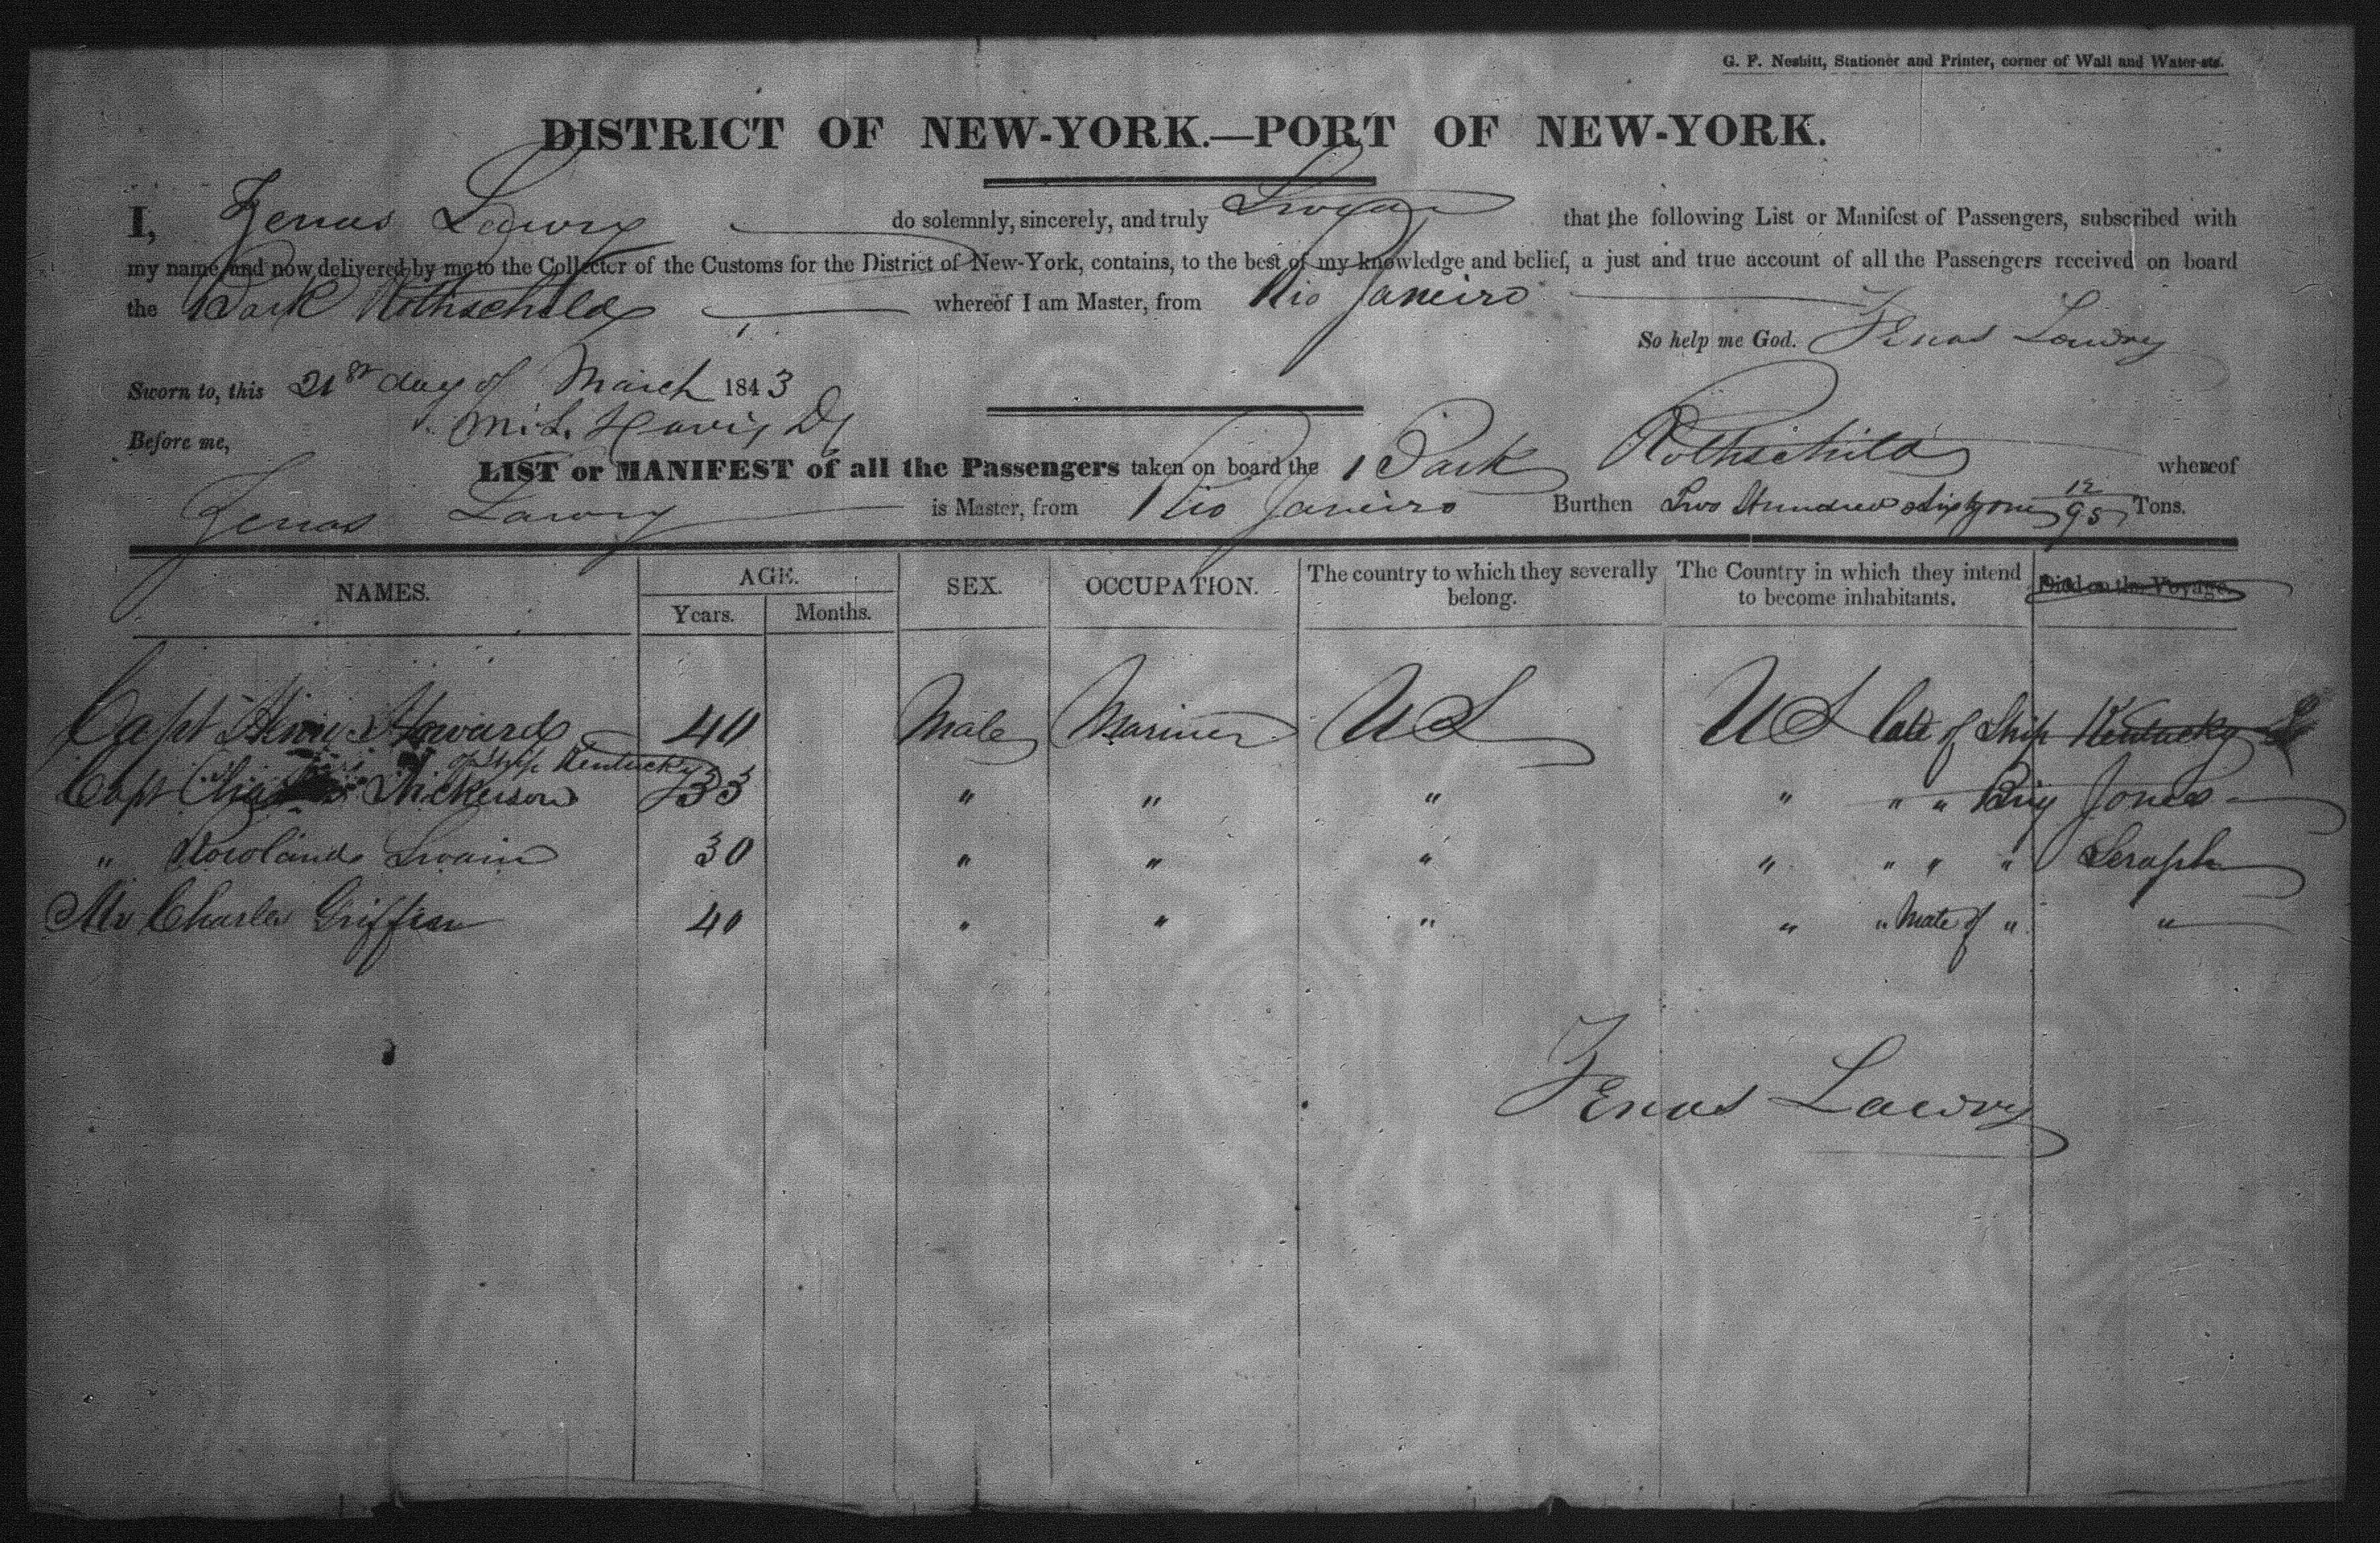 G. F. Nesbitt, Stationer and Printer, corner of Wall and Water-sts.
DISTRICT OF NEW-YORK.—PORT OF NEW-YORK.
I, Zenas Lawry do solemnly, sincerely, and truly Swear that the following List or Manifest of Passengers, subscribed with
my name and now delivered by me to the Collector of the Customs for the District of New-York, contains, to the best of my knowledge and belief, a just and true account of all the Passengers received on board
the Bark Rothschild whereof I am Master, from Rio Janeiro
So help me God. Zenas Lawry
Sworn to, this 21st day of March 1843
Before me,
LIST or MANIFEST of all the Passengers taken on board the Bark Rothschild whereof
Zenas Lawry is Master, from Rio Janeiro Burthen Two Hundred Sixty one 12/95 Tons.
NAMES. AGE. SEX. OCCUPATION. The country to which they severally belong. The Country in which they intend to become inhabitants. Died on the Voyage.
Years. Months.
Capt Howard 40 Male Mariner U S U S late of Ship Kentucky
of Ship Kentucky
Capt Nickerson 33 " " " " " " Brig Jones
" Rowland Swain 30 " " " " " " " Seraph
Mr Charles Griffin 40 " " " " " Mate of " "
Zenas Lawry